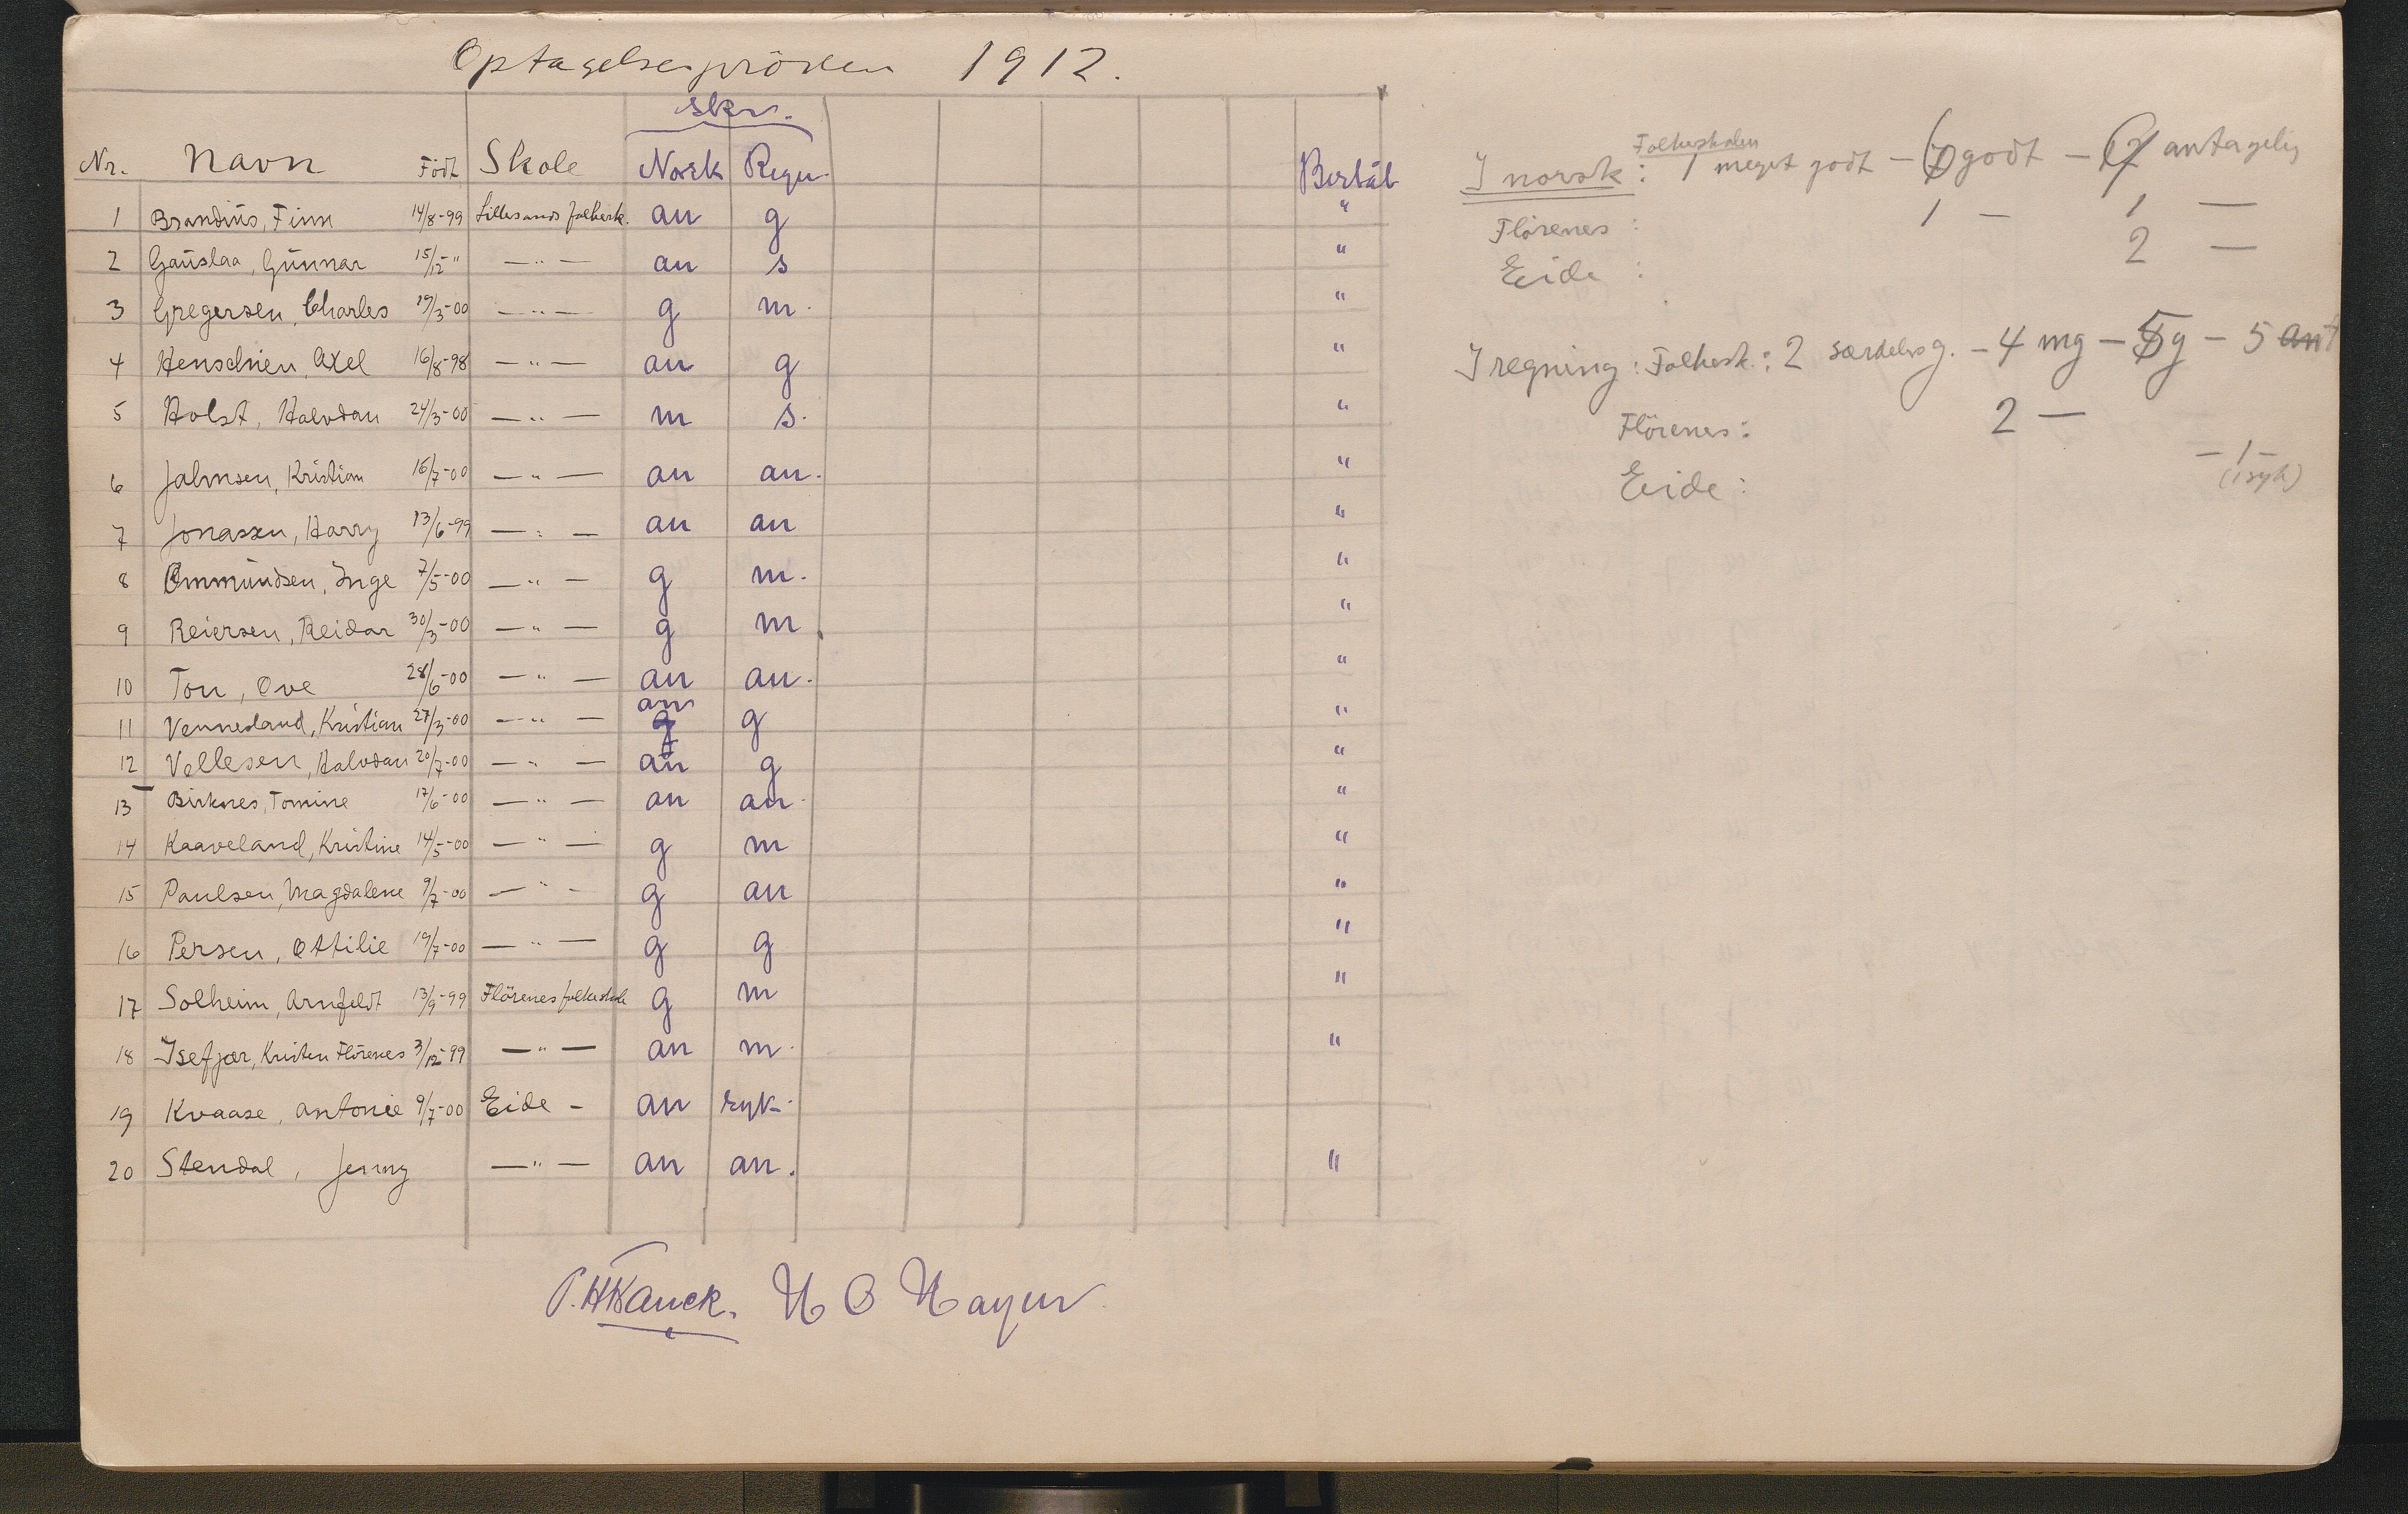 Optagelsespröven 1912.
skr.
Nr. Navn Födt Skole Norsk Regn. Bestaat
1 Brandius, Finn 14/8-99 Lillesands folkesk. an g "
2 Gauslaa, Gunnar 15/12-" —"— an s "
3 Gregersen, Charles 19/3-00 —"— g m. "
4 Henschien, Axel 16/8-98 —"— an g "
5 Holst, Halvdan 24/3-00 —"— m s. "
6 Jahnsen, Kristian 16/7-00 —"— an an. "
7 Jonassen, Harry 13/6-99 —"— an an "
8 Ommundsen, Inge 7/5-00 —"— g m. "
9 Reiersen, Reidar 30/3-00 —"— g m. "
10 Tou, Ove 28/6-00 —"— an an. "
11 Vennesland, Kristian 27/3-00 —"— an g g "
12 Vellesen, Halvdan 20/7-00 —"— an g "
13 Birknes, Tomine 17/6-00 —"— an an. "
14 Kaaveland, Kristine 14/5-00 —"— g m "
15 Paulsen, Magdalene 9/7-00 —"— g an "
16 Persen, Ottilie 19/7-00 —"— g g "
17 Solheim, Arnfeldt 13/9-99 Flörenes folkeskole g m "
18 Isefjær, Kristen Flörenes 3/12-99 —"— an m. "
19 Kvaase, Antonie 9/7-00 Eide - an syk.
20 Stendal, Jenny —"— an an. "
Folkeskolen
I norsk: 1 meget godt — godt — antagelig
Flörenes: 1 — 1 —
Eide: 2 —
I regning: Folkesk.: 2 særdeles g. — 4 mg — 5 g — 5 ant
Flörenes: 2 —
Eide: — 1 —
(1 syk)